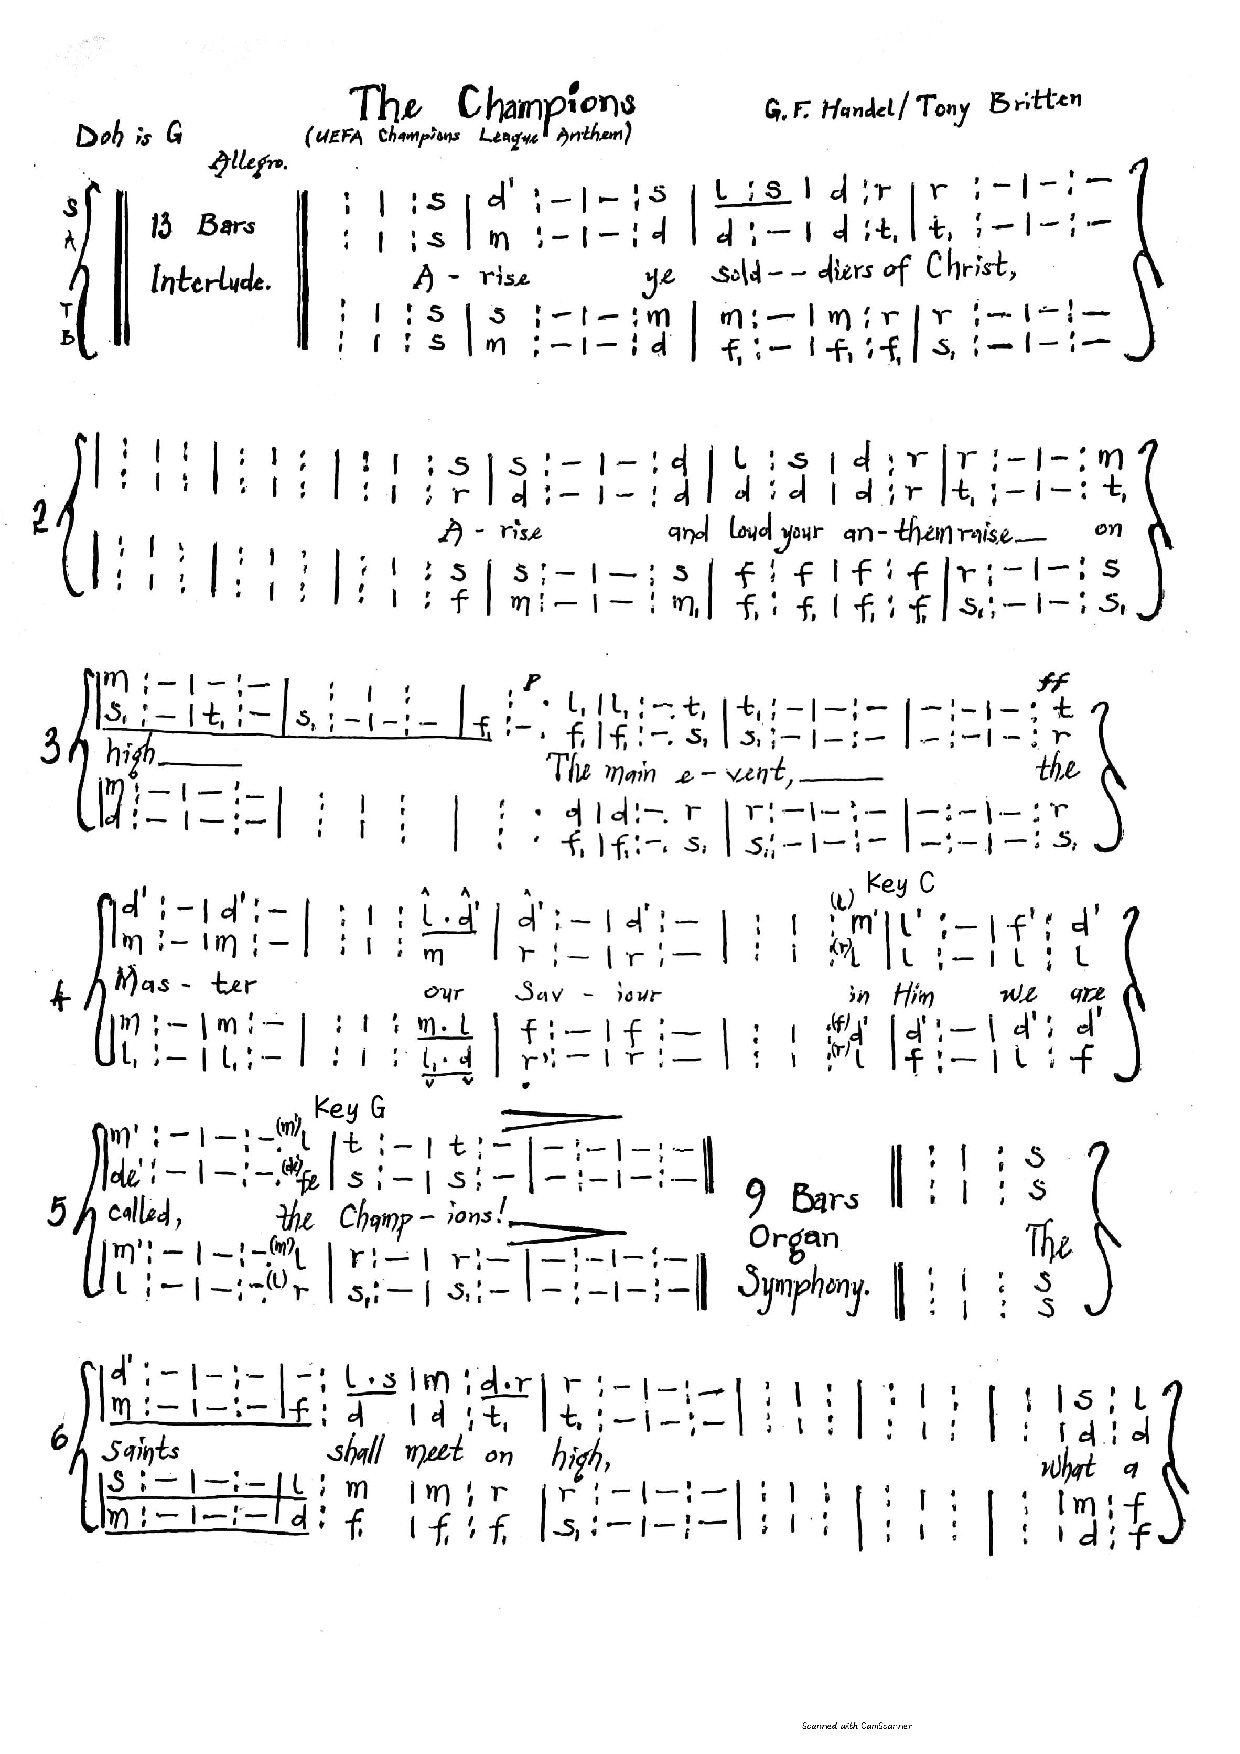 The Champions
G. F. Handel/Tony Britten
Doh is G
(UEFA Champions League Anthem)
Allegro.
S : | : s | d' : - | - : s | l : s | d : r | r : - | - : -
A : | : s | m : - | - : d | d : - | d : t, | t, : - | - : -
13 Bars Interlude.
A - rise ye sold - - diers of Christ,
T : | : s | s : - | - : m | m : - | m : r | r : - | - : -
B : | : s | m : - | - : d | f, : - | f, : f, | s, : - | - : -
2
| : | : | : | : | : | : s | s : - | - : d | l : s | d : r | r : - | - : m
| : | : | : | : | : | : r | d : - | - : d | d : d | d : r | t, : - | - : t,
A - rise and loud your an - them raise on
| : | : | : | : | : | : s | s : - | - : s | f : f | f : f | r : - | - : s
| : | : | : | : | : | : f | m : - | - : m, | f, : f, | f, : f, | s, : - | - : s,
p ff
3
| m : - | - : - | : | : | : . l, | l, : - . t, | t, : - | - : - | - : - | - : t
| s, : - | t, : - | s, : - | - : - | f, : - . f, | f, : - . s, | s, : - | - : - | - : - | - : r
high The main e - vent, the
| m : - | - : - | : | : | : . d | d : - . r | r : - | - : - | - : - | - : r
| d : - | - : - | : | : | : . f, | f, : - . s, | s, : - | - : - | - : - | - : s,
Key C
4
d' : - | d' : - | : | : l . d' | d' : - | d' : - | : | : (l) m' | l' : - | f' : d'
m : - | m : - | : | : m | r : - | r : - | : | : (r) l | l : - | l : l
Mas - ter our Sav - iour in Him we are
m : - | m : - | : | : m . l | f : - | f : - | : | : (f) d' | d' : - | d' : d'
l, : - | l, : - | : | : l, . d | r : - | r : - | : | : (r) l | f : - | l : f
Key G
5
m' : - | - : - . (m') l | t : - | t : - | - : - | - : - || : | : s
de' : - | - : - . (de') fe | s : - | s : - | - : - | - : - || : | : s
called, the Champ - ions!
9 Bars Organ Symphony.
The
m' : - | - : - . (m') l | r : - | r : - | - : - | - : - || : | : s
l : - | - : - . (l) r | s, : - | s, : - | - : - | - : - || : | : s
6
d' : - | - : - | - : l . s | m : d . r | r : - | - : - | : | : | : | : | : | s : l
m : - | - : - | f : d | d : t, | t, : - | - : - | : | : | : | : | : | d : d
Saints shall meet on high, What a
s : - | - : - | l : m | m : r | r : - | - : - | : | : | : | : | : | m : f
m : - | - : - | d : f, | f, : f, | s, : - | - : - | : | : | : | : | : | d : f
Scanned with CamScanner